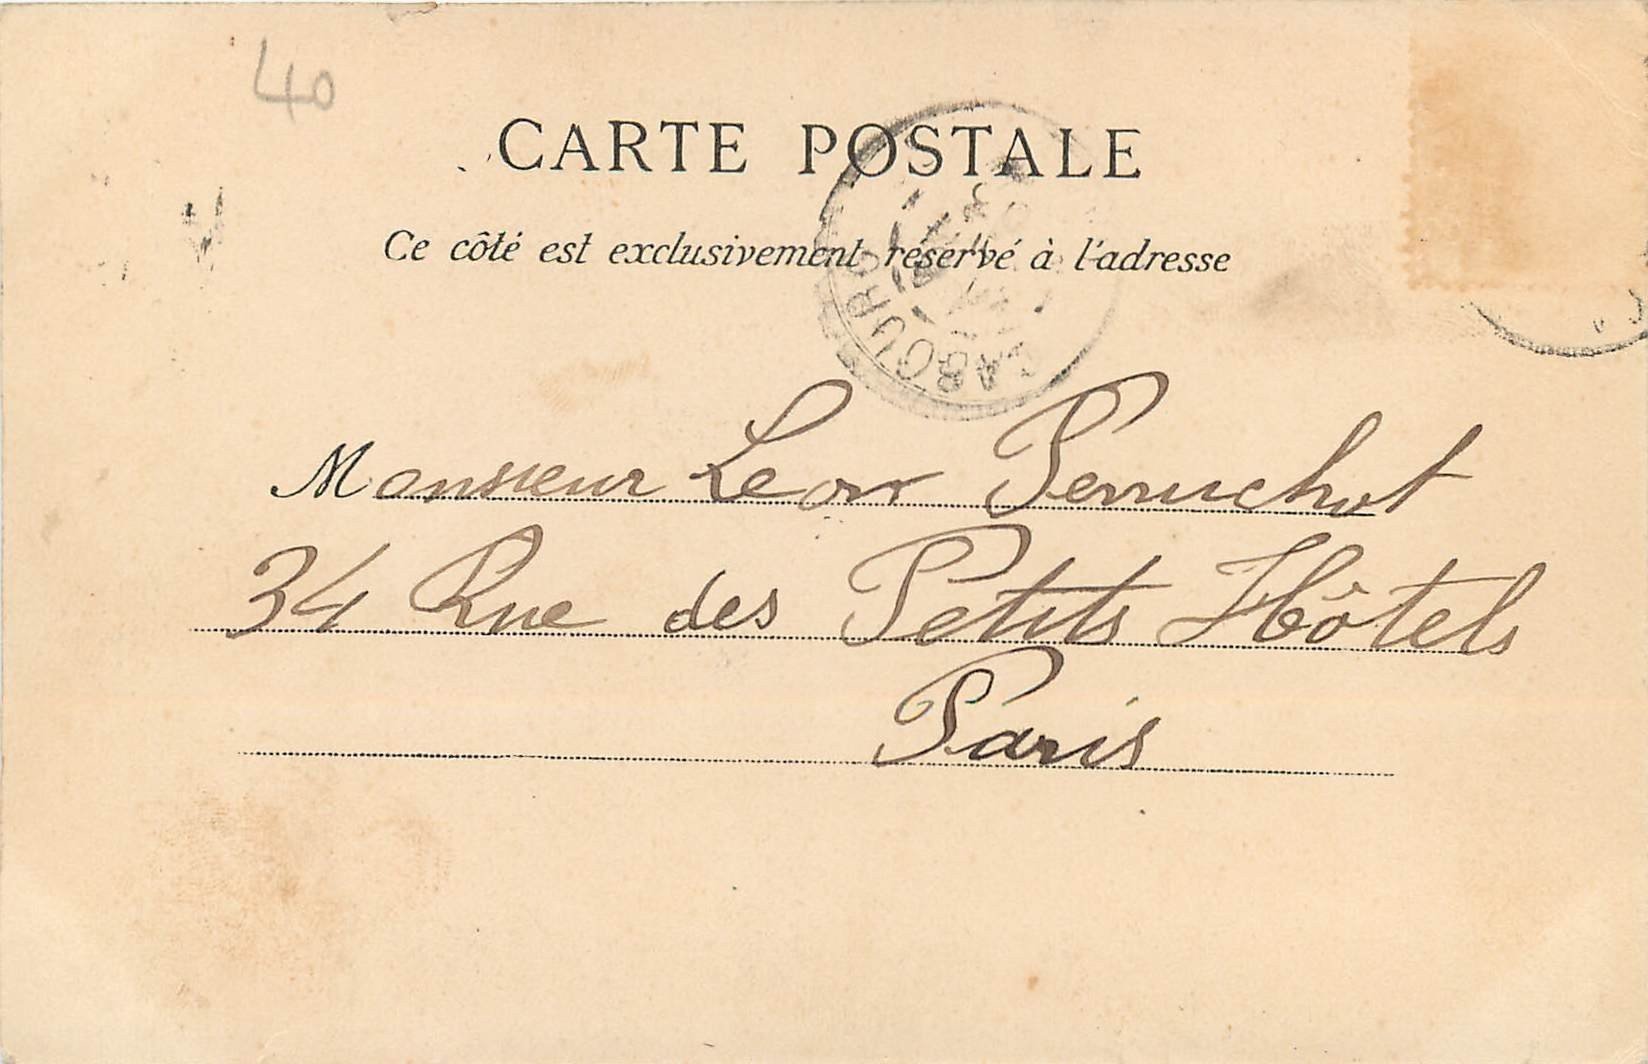 40
CARTE POSTALE
Ce côté est exclusivement réservé à l'adresse
Monsieur Leon Perruchot
34 Rue des Petits Hôtels
Paris